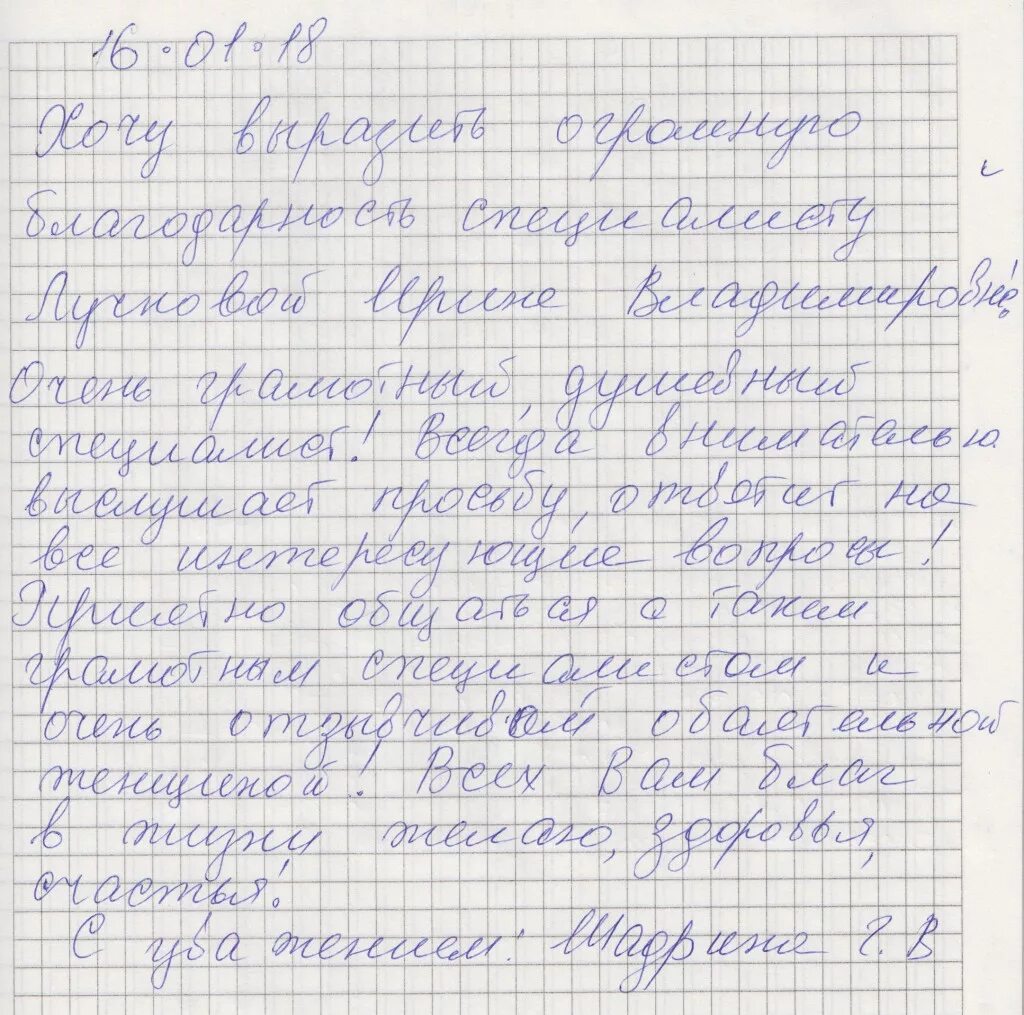 16.01.18
Хочу выразить огромную
благодарность специалисту
Лучковой Ирине Владимировне!
Очень грамотный, душевный
специалист! Всегда внимательно
выслушает просьбу, ответит на
все интересующие вопросы!
Приятно общаться с таким
грамотным специалистом и
очень отзывчивой обаятельной
женщиной! Всех Вам благ
в жизни желаю, здоровья,
счастья!
С уважением: Шадрина Г. В